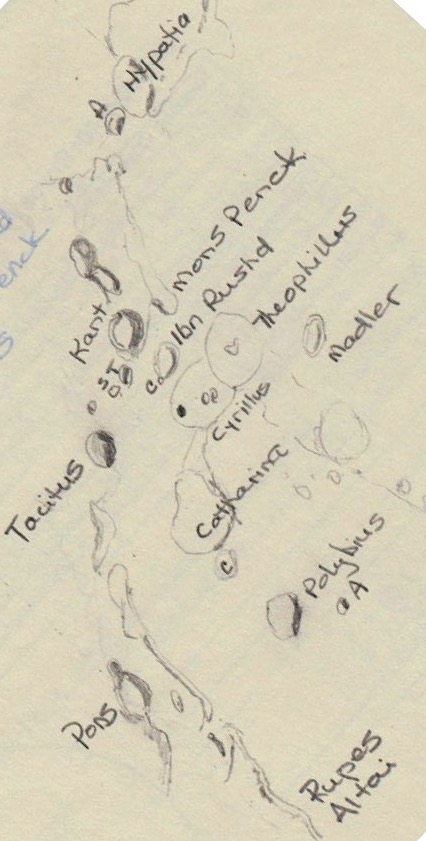 Hypatia
A
Mons Penck
Ibn Rushd
Theophillus
Madler
Kant
S T
C
Cyrillus
Tacitus
Catharina
C
Polybius
A
Pons
Rupes
Altai
enck
s